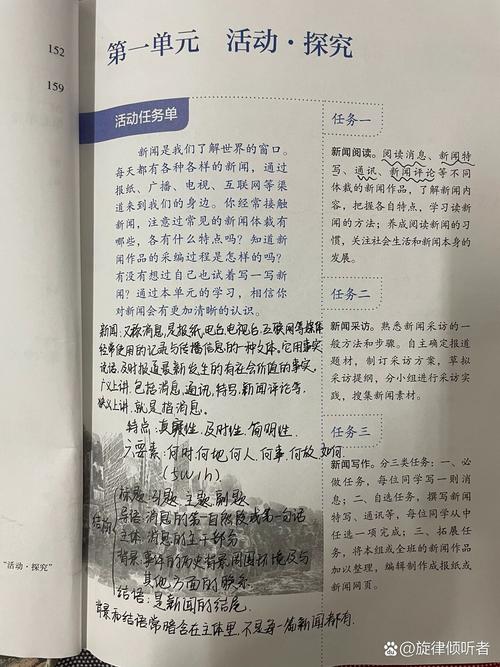 152
159
第一单元 活动·探究
活动任务单
新闻是我们了解世界的窗口。
每天都有各种各样的新闻，通过
报纸、广播、电视、互联网等渠
道来到我们的身边。你经常接触
新闻，注意过常见的新闻体裁有
哪些，各有什么特点吗？知道新
闻作品的采编过程是怎样的吗？
有没有想过自己也试着写一写新
闻？通过本单元的学习，相信你
对新闻会有更加清晰的认识。
新闻，又称消息，是报纸、电台、电视台、互联网等媒体
经常使用的记录与传播信息的一种文体。它用事实
说话，及时报道最新发生的有社会价值的事实。
广义上讲，包括消息、通讯、特写、新闻评论等。
狭义上讲，就是指消息。
特点：真实性、及时性、简明性。
六要素：何时何地何人何事何故如何
(5W1h)
结构
标题：引题、主题、副题
导语：消息的第一自然段或第一句话
主体：消息的主干部分
背景：事件的历史背景周围环境及与
其他方面的联系
结语：是新闻的结尾
背景和结语常暗含在主体里，不是每一篇新闻都有.
任务一
新闻阅读。阅读消息、新闻特
写、通讯、新闻评论等不同
体裁的新闻作品，了解新闻内
容，把握各自特点，学习读新
闻的方法；养成阅读新闻的习
惯，关注社会生活和新闻本身的
发展。
任务二
新闻采访。熟悉新闻采访的一
般方法和步骤。自主确定报道
题材，制订采访方案，草拟
采访提纲，分小组进行采访实
践，搜集新闻素材。
任务三
新闻写作。分三类任务：一、必
做任务，每位同学写一则消
息；二、自选任务，撰写新闻
特写、通讯等，每位同学从中
任选一项完成；三、拓展任
务，将本组或全班的新闻作品
加以整理，编辑制作成报纸或
新闻网页。
“活动·探究”
@旋律倾听者